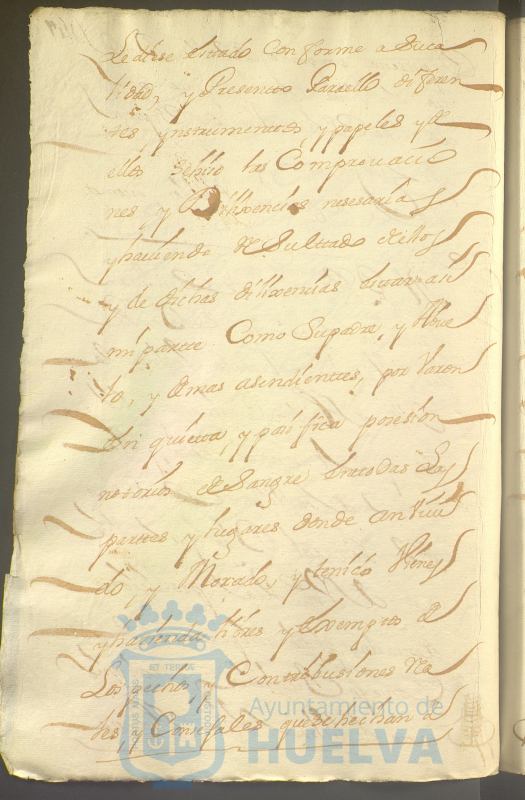 Se diese estado Conforme a Suca
lidad, y Presento Para ello diferen
tes ynstrumentos, y papeles y de
ellos Se hizo las Comprouacio
nes y Dilixencias nesesarias
y hauiendo Resulttado de ellos
y de dichas dilixencias estar asi
mi parte Como Supadre, y Abue
lo, y demas asendientes, por Varon
En quietta, y pasifica posesion
notorios de Sangre En todas Las
partes y lugares donde an Viui
do, y Morado, y tenido Vienes
y hazienda libres y Exemptos de
Los pechos, y Contribusiones Rea
les, y Consejales que Se hechan a
Ayuntamiento de
HUELVA